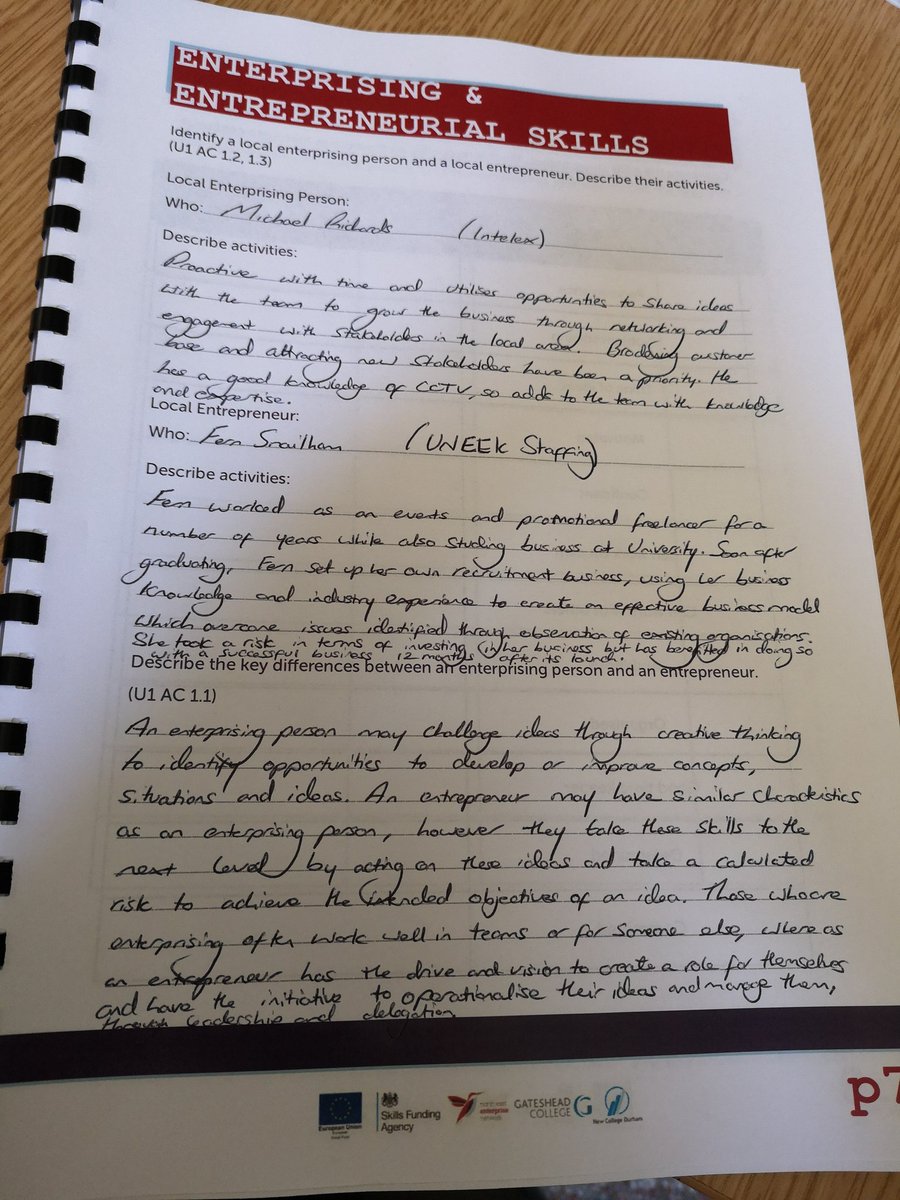 ENTERPRISING &
ENTREPRENEURIAL SKILLS
Identify a local enterprising person and a local entrepreneur. Describe their activities.
(U1 AC 1.2, 1.3)
Local Enterprising Person:
Who: Michael Richards (Intelex)
Describe activities:
Proactive with time and utilises opportunties to share ideas
with the team to grow the business through networking and
engagement with stakeholders in the local area. customer
base and attracting new stakeholders have been a priority. He
has a good knowledge of CCTV, so adds to the team with knowledge
and expertise.
Local Entrepreneur:
Who: Fern (UNEEK Staffing)
Describe activities:
Fern worked as an events and promotional freelancer for a
number of years while also studing business at University. Soon after
graduating, Fern set up her own recruitment business, using her business
knowledge and industry experience to create an effective business model
which overcame issues identified through observation of existing organisations.
She took a risk in terms of investing in her business but has benefitted in doing so
with a successful business 12 months after its launch.
Describe the key differences between an enterprising person and an entrepreneur.
(U1 AC 1.1)
An enterprising person may challenge ideas through creative thinking
to identify opportunities to develop or improve concepts,
situations and ideas. An entrepreneur may have similar
as an enterprising person, however they take these skills to the
next level by acting on these ideas and take a calculated
risk to achieve the intended objectives of an idea. Those who are
enterprising often work well in teams or for someone else, where as
an entrepreneur has the drive and vision to create a role for themselves
and have the initiative to operationalise their ideas and manage them,
through leadership and delegation
European Union
Skills Funding
Agency
north east
enterprise
network
GATESHEAD
COLLEGE G
New College Durham
p7